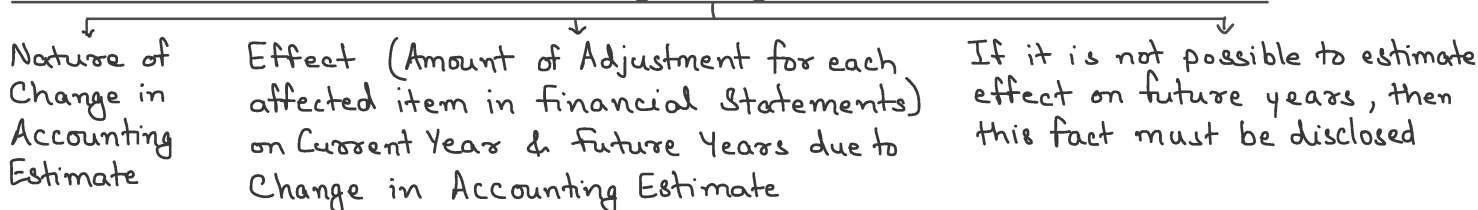 Nature of
Change in
Accounting
Estimate
Effect (Amount of Adjustment for each
affected item in financial Statements)
on Current Year & Future Years due to
Change in Accounting Estimate
If it is not possible to estimate
effect on future years, then
this fact must be disclosed